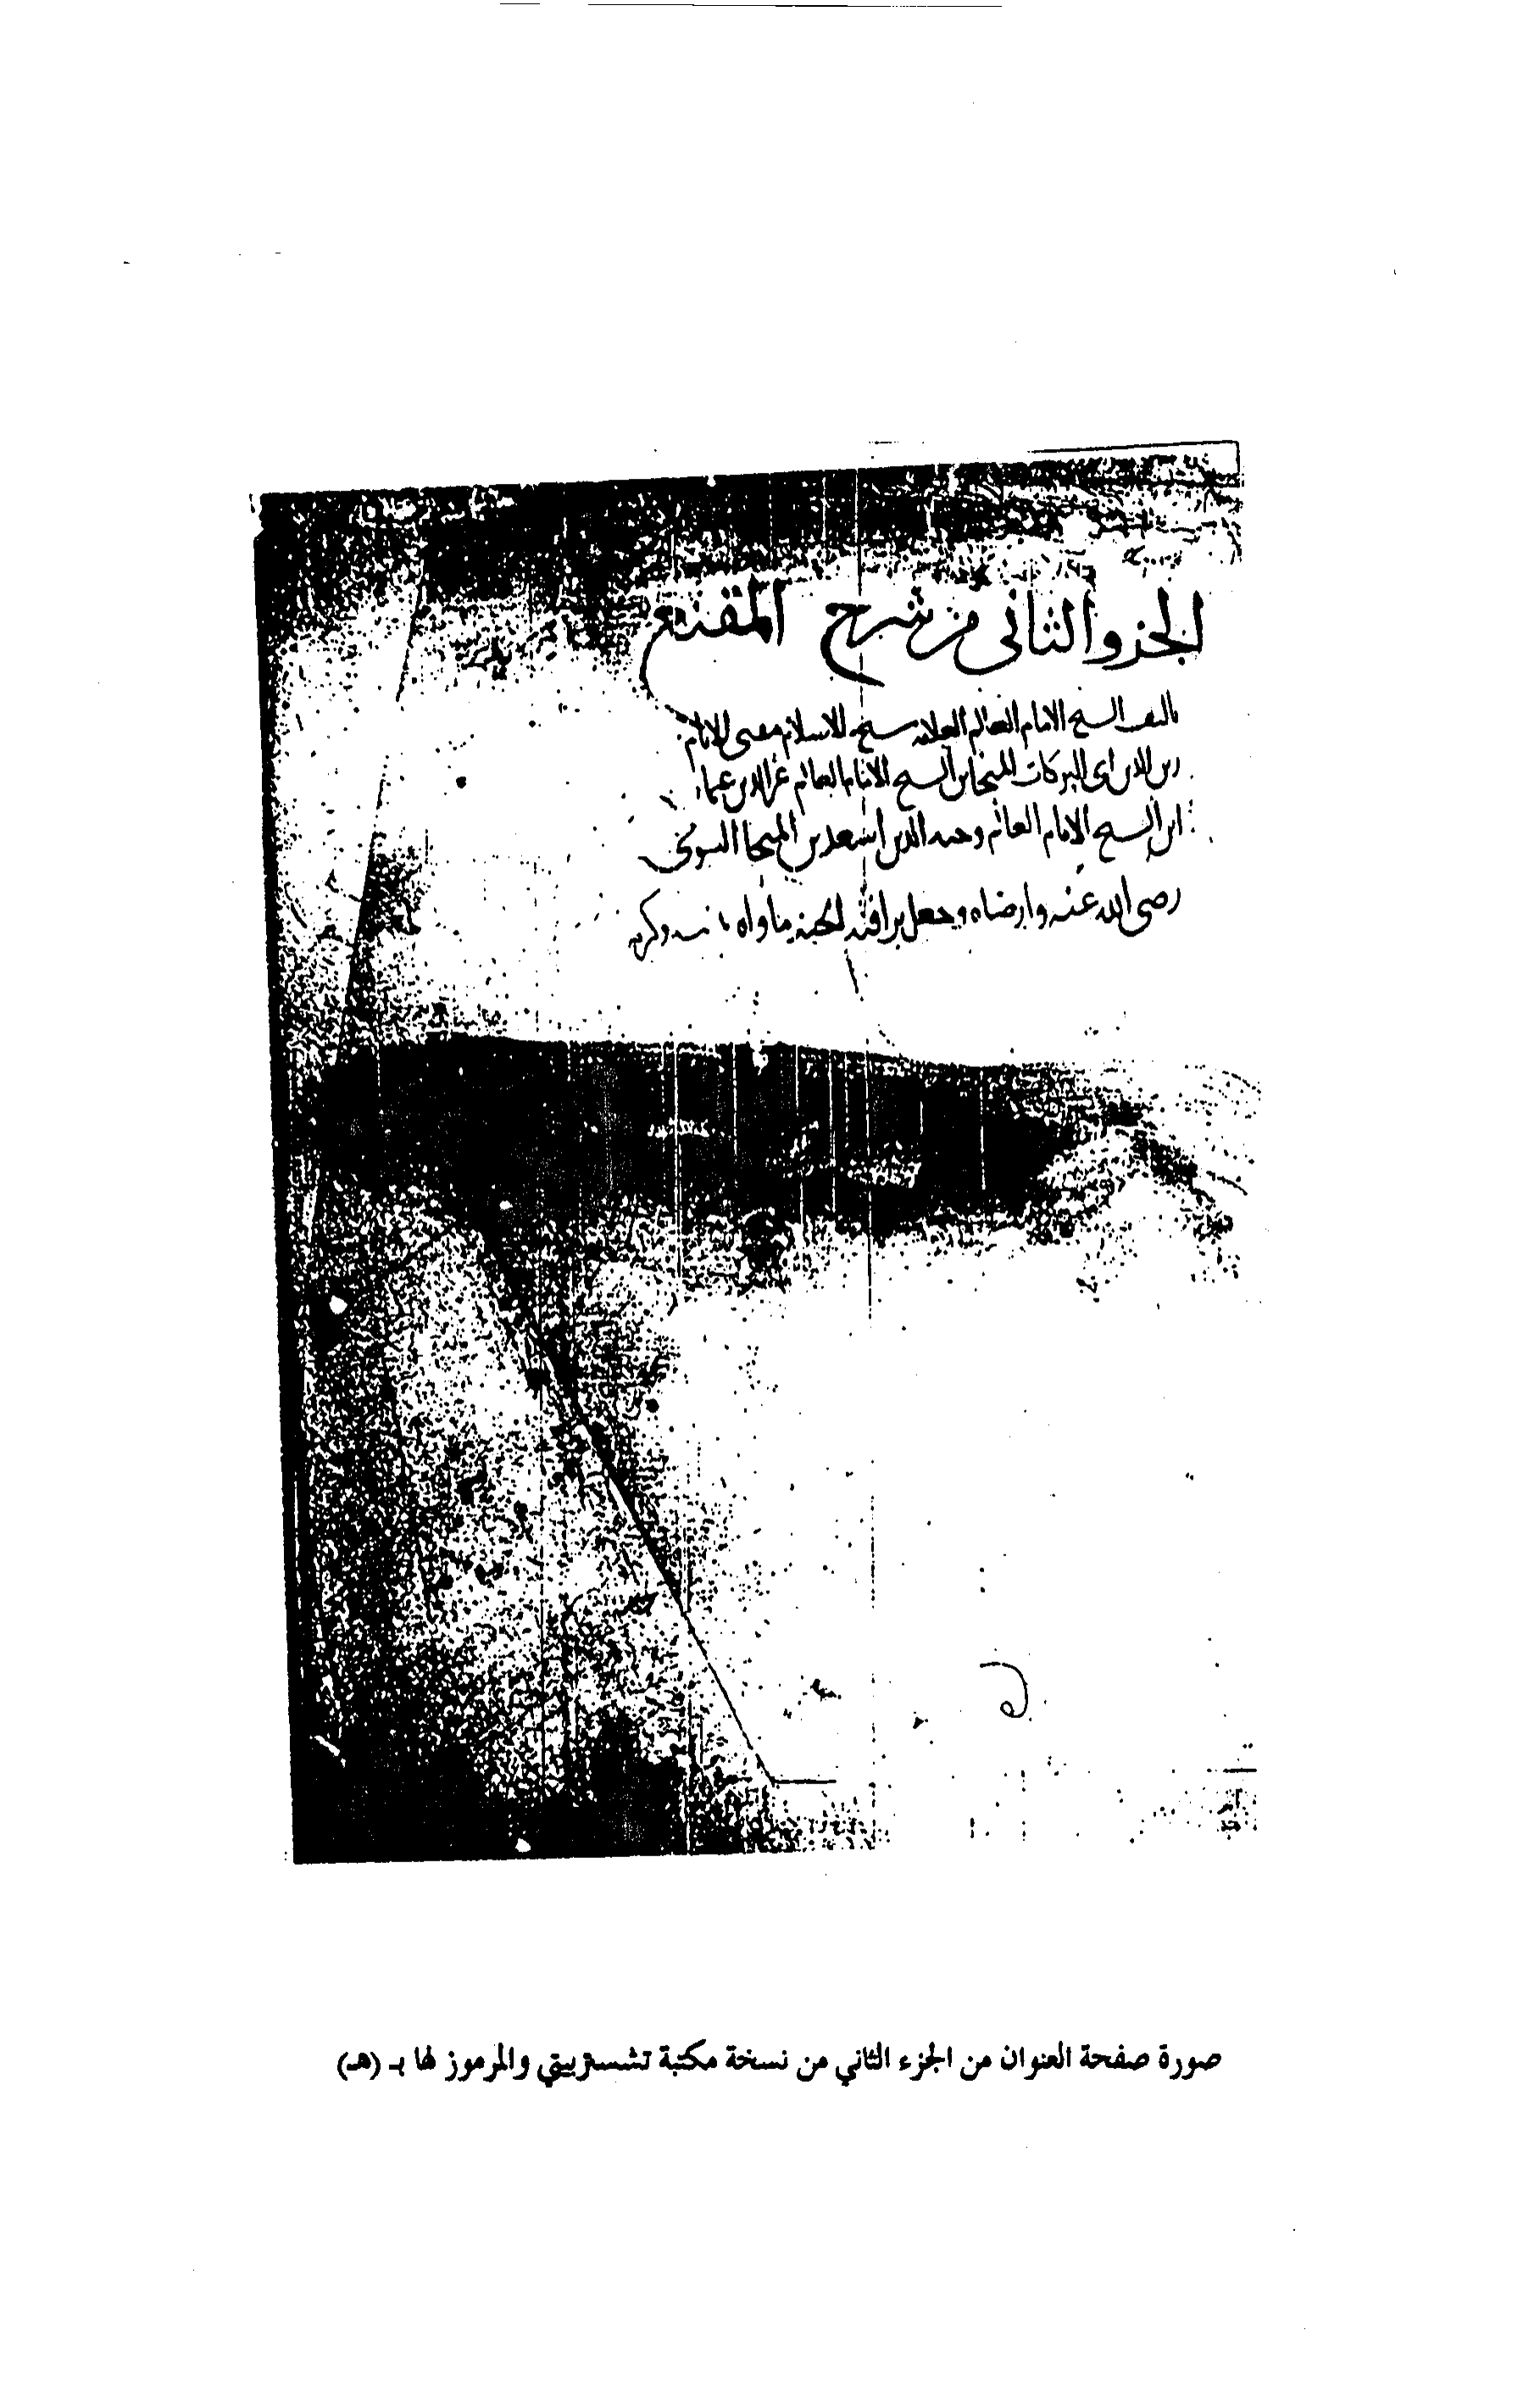 الجزو الثاني من شرح المقنع
تاليف الشيخ الامام العالم العلامه شيخ الاسلام مفتي الانام
زين الدين ابي البركات المنجا بن الشيخ الامام العالم عز الدين عثمان
ابن الشيخ الامام العالم وجيه الدين اسعد بن المنجا التنوخي
رضي الله عنه وارضاه وجعل الجنة ماواه وكرمه
صورة صفحة العنوان من الجزء الثاني من نسخة مكتبة تشستربيتي والمرموز لها بـ (هـ)